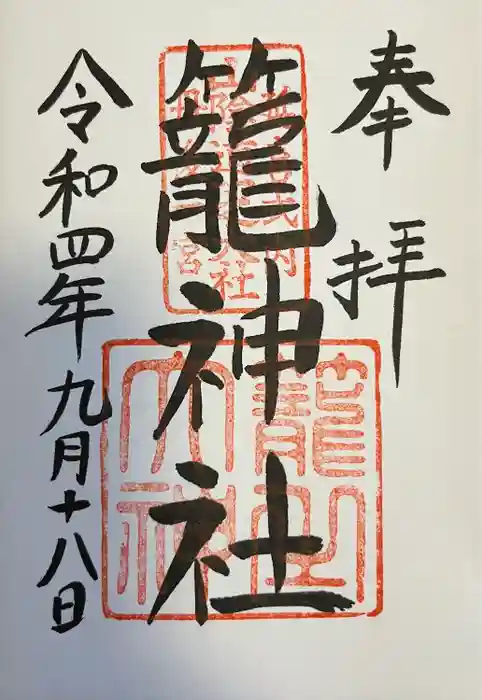 奉拝
籠神社
令和四年九月十八日